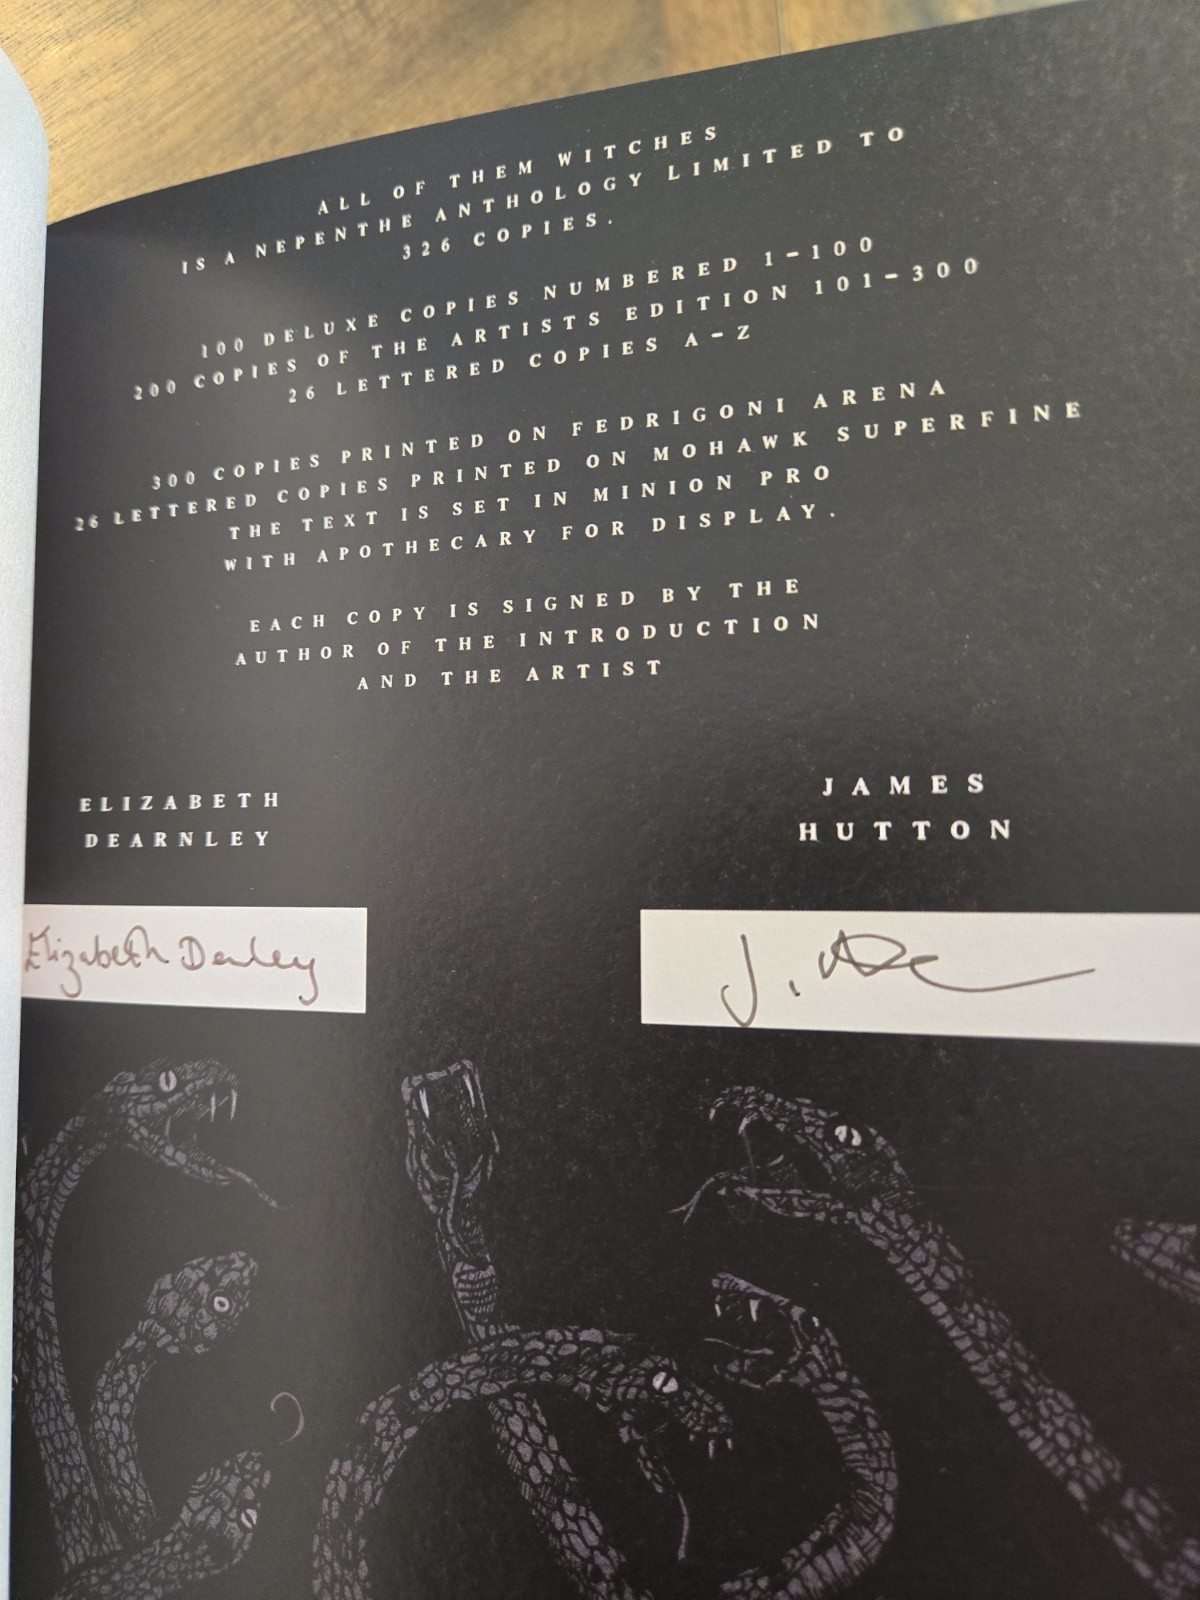 ALL OF THEM WITCHES
IS A NEPENTHE ANTHOLOGY LIMITED TO
326 COPIES.
100 DELUXE COPIES NUMBERED 1-100
200 COPIES OF THE ARTISTS EDITION 101-300
26 LETTERED COPIES A-Z
300 COPIES PRINTED ON FEDRIGONI ARENA
26 LETTERED COPIES PRINTED ON MOHAWK SUPERFINE
THE TEXT IS SET IN MINION PRO
WITH APOTHECARY FOR DISPLAY.
EACH COPY IS SIGNED BY THE
AUTHOR OF THE INTRODUCTION
AND THE ARTIST
ELIZABETH
DEARNLEY
JAMES
HUTTON
Elizabeth Dearnley
J.